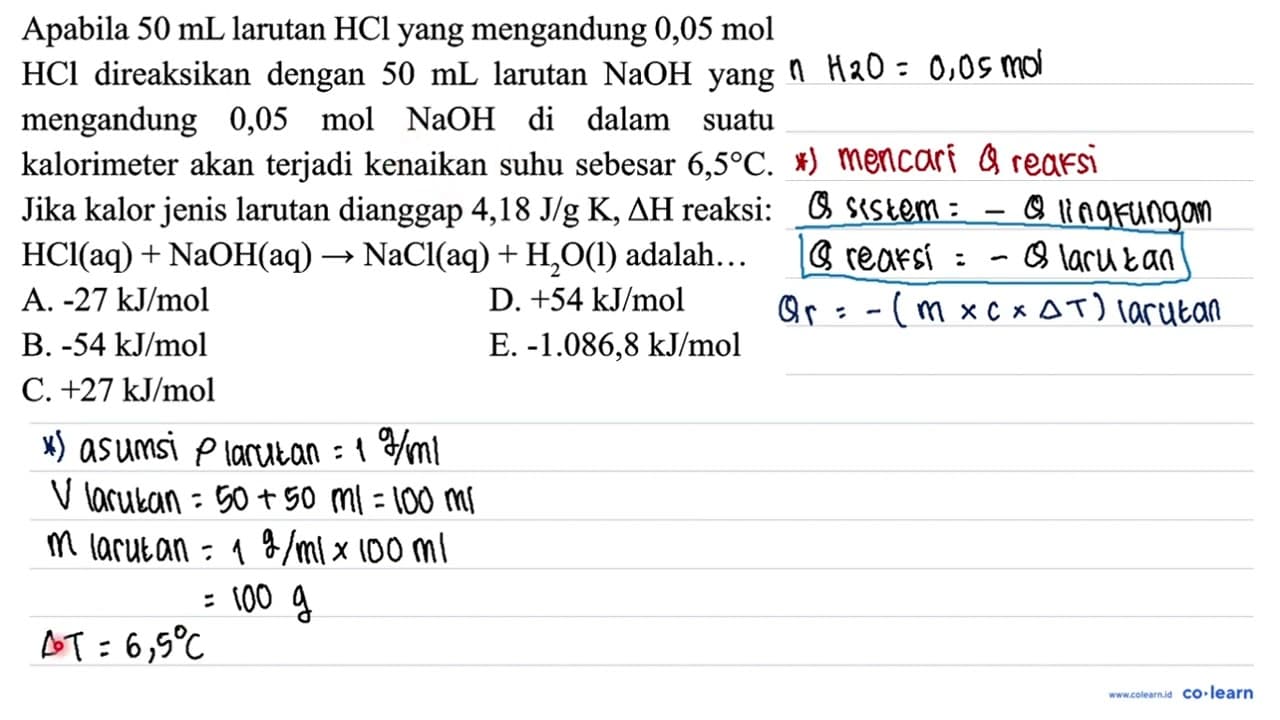 Apabila 50 mL larutan HCl yang mengandung 0,05 mol
HCl direaksikan dengan 50 mL larutan NaOH yang
mengandung 0,05 mol NaOH di dalam suatu
kalorimeter akan terjadi kenaikan suhu sebesar 6,5°C.
Jika kalor jenis larutan dianggap 4,18 J/g K, ΔH reaksi:
HCl(aq) + NaOH(aq) → NaCl(aq) + H₂O(l) adalah...
A. -27 kJ/mol
D. +54 kJ/mol
B. -54 kJ/mol
E. -1.086,8 kJ/mol
C. +27 kJ/mol
n H2O = 0,05 mol
*) mencari Q reaksi
Q sistem = - Q lingkungan
Q reaksi = - Q larutan
Qr = - (m × c × ΔT) larutan
*) asumsi ρ larutan = 1 g/ml
V larutan = 50 + 50 ml = 100 ml
m larutan = 1 g/ml × 100 ml
= 100 g
ΔT = 6,5°C
www.colearn.id co·learn